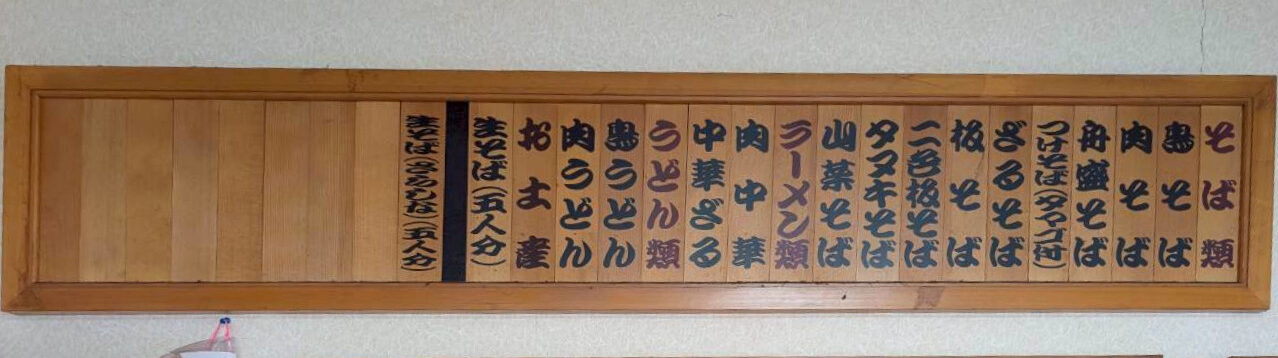 そば類
鳥そば
肉そば
舟盛そば
つけそば(タマゴ付)
ざるそば
板そば
二合板そば
タヌキそば
山菜そば
ラーメン類
肉中華
中華ざる
うどん類
鳥うどん
肉うどん
お土産
生そば(五人分)
生そば(さらしな)(五人分)